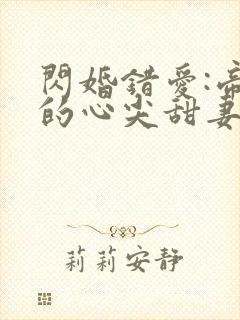 閃婚錯愛:帝
的心尖甜妻
莉莉安靜